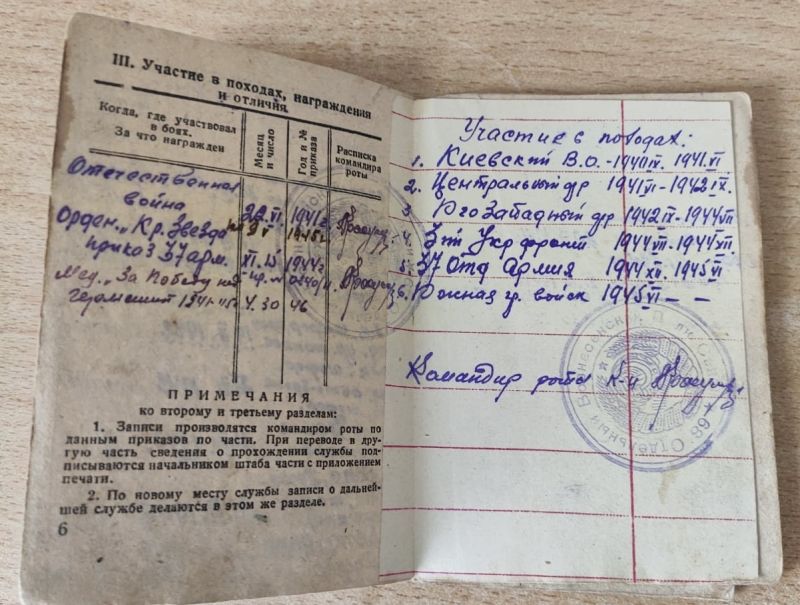 III. Участие в походах, награждения
и отличия.
Когда, где участвовал
в боях.
За что награжден
Месяц
и число
Год и №
приказа
Расписка
командира
роты
Отечественная
война 22 VI 1941 г.
Орден „Кр. Звезда" 9 V 1945 г.
приказ 37 арм. XI. 15 1944 г.
Мед. „За Победу над
Германией 1941 4. 30 46
ПРИМЕЧАНИЯ
ко второму и третьему разделам:
1. Записи производятся командиром роты по
данным приказов по части. При переводе в дру-
гую часть сведения о прохождении службы под-
писываются начальником штаба части с приложением
печати.
2. По новому месту службы записи о дальней-
шей службе делаются в этом же разделе.
6
Участие в походах:
1. Киевский В.О. - 1940 IX. 1941 VI
2. Центральный фр 1941 VI - 1942 IX.
3 Юго Западный фр 1942 IX - 1944 VII
4. 3 ий Укр фронт 1944 VII - 1944 XII.
5. 37 Отд Армия 1944 XII. 1945 VI
6. Южная гр. войск 1945 VI - -
Командир роты к-н
66 Отдельный